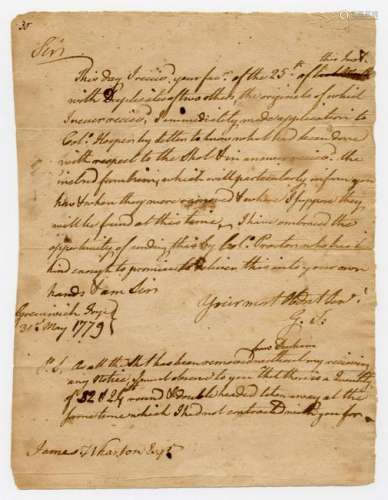 Sir
this Inst.
This day I recd. your favr. of the 25th of
with Duplicates of two others, the originals of which
I never recd, I immediately made application to
Colo. Hooper by letter to know what had been done
with respect to the Shot & in answer recd. the
inclosd from him, which will particularly inform you
how & when they were removd & where I suppose they
will be found at this time, I have embraced the
opportunity of sending this by Colo. Proctor who has
had enough to promise to deliver this into your own
hands I am Sir
Your most Obedt. Servt.
Greenwich Forge
31st May 1779
G. T.
P.S. As all the Shot has been removd without my receiving
any Notice, I must observe to you that there is a Quantity
of 32 & 24 round & double headed taken away at the
same time which I had not contractd with you for
James Wharton Esqr.